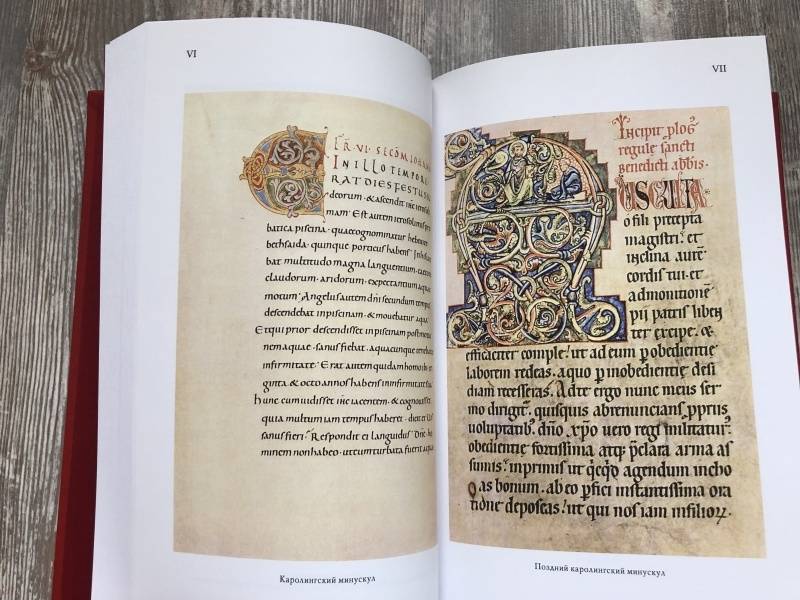 VI
FR̄. VI. SECŌM IOHANN
IN ILLO TEMPORE
RAT DIES FESTUS IU
deorum · & ascendit ihc̄ ierosoly
mam · Est autem ierosolimis pro
batica piscina · quae cognominatur hebraice
bethsaida · quinque porticus habens · In his iace
bat multitudo magna languentium · caecorum
claudorum · aridorum · expectantium aquae
motum · Angelus autem dn̄i secundum tempus
descendebat in piscinam · & mouebatur aqua
Et qui prior descendisset in piscinam post mo
nem aquae · sanus fiebat · a quacunque teneba
infirmitate · Erat autem quidam homo ibi
ginta & octo annos habens in infirmitate sua
hunc cum uidisset ihc̄ iacentem · & cognouisset
quia multum iam tempus haberet · dicit ei Uis
sanus fieri · Respondit ei languidus · Dn̄e · ho
minem non habeo · ut cum turbata fuerit aqua
Каролингский минускул
VII
Incipit plog
regule sancti
Benedicti abbis.
USCULTA
o fili precepta
magistri · et
inclina aurē
cordis tui · et
admonitionē
pii patris liben
ter excipe · &
efficaciter comple · ut ad eum p obedientie
laborem redeas · a quo p inobedientie desi
diam recesseras · Ad te ergo nunc meus ser
mo dirigit · quisquis abrenuncians ppriis
uoluptatib · dño xp̄o uero regi militatur
obedientie fortissima atq pclara arma as
sumis · inprimis ut qcqd agendum incho
as bonum · ab eo pfici instantissima ora
tione deposcas · ut qui nos iam in filioꝝ
Поздний каролингский минускул